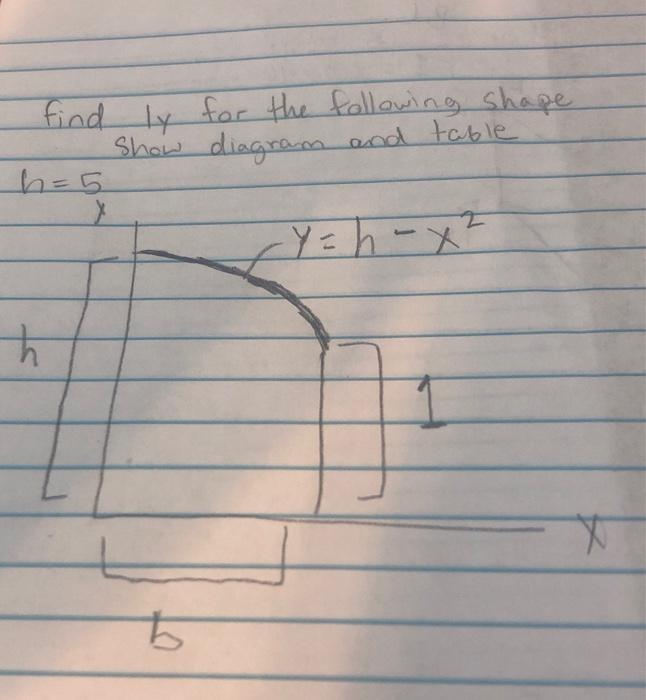 find Iy for the following shape
show diagram and table
h = 5
y
y = h - x²
h
1
x
b